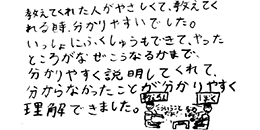 教えてくれた人がやさしくて、教えてく
れる時、分かりやすいでした。
いっしょにふくしゅうもできて、やった
ところがなぜこうなるかまで、
分かりやすく説明してくれて、
分からなかったことが分かりやすく
理解できました。